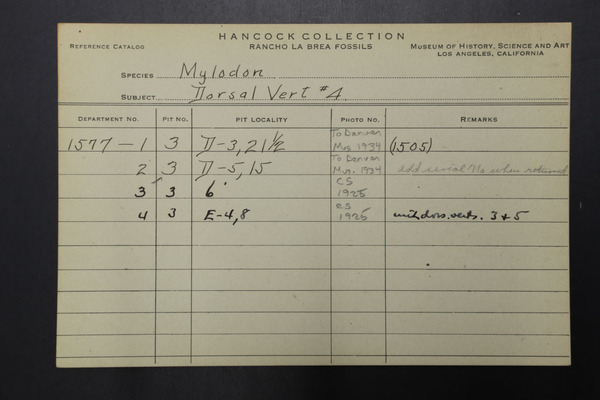 HANCOCK COLLECTION
REFERENCE CATALOG RANCHO LA BREA FOSSILS MUSEUM OF HISTORY, SCIENCE AND ART
LOS ANGELES, CALIFORNIA
SPECIES Mylodon
SUBJECT Dorsal Vert #4
DEPARTMENT NO. PIT NO. PIT LOCALITY PHOTO NO. REMARKS
1577-1 3 D-3, 21 1/2 To Denver Mus 1934 (1505)
2 3 D-5, 15 To Denver Mus. 1934 add serial No when returned
3 3 6' CS 1925
4 3 E-4, 8 CS 1925 with dors. verts. 3+5